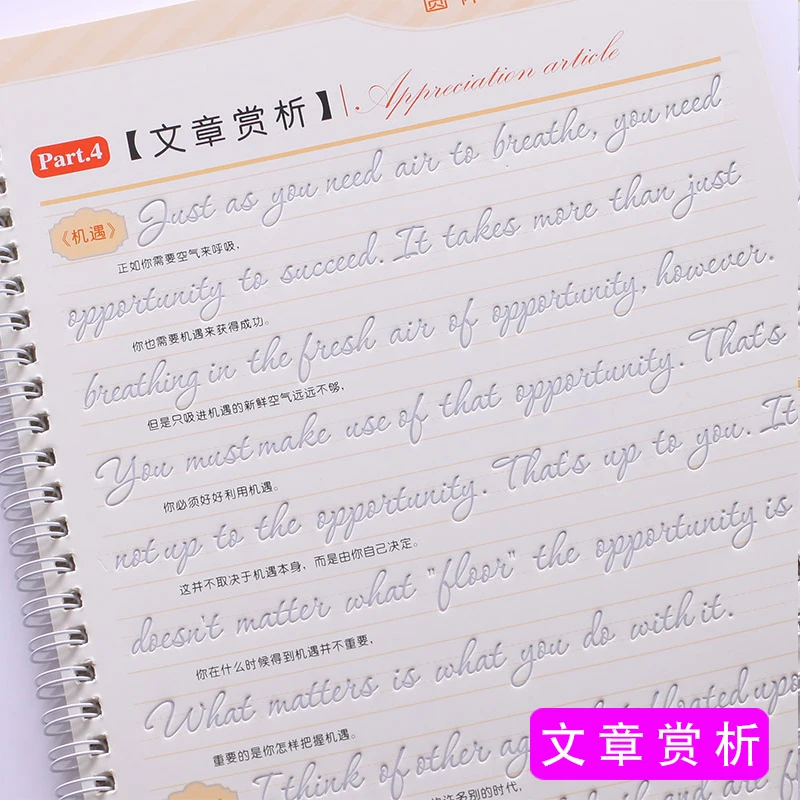 Part.4 【文章赏析】 Appreciation article
《机遇》 Just as you need air to breathe, you need
正如你需要空气来呼吸,
opportunity to succeed. It takes more than just
你也需要机遇来获得成功。
breathing in the fresh air of opportunity, however.
但是只吸进机遇的新鲜空气远远不够,
You must make use of that opportunity. That's
你必须好好利用机遇。
not up to the opportunity. That's up to you. It
这并不取决于机遇本身,而是由你自己决定。
doesn't matter what "floor" the opportunity is
你在什么时候得到机遇并不重要,
What matters is what you do with it.
重要的是你怎样把握机遇。
I think of other floated upo
许名别的时代,
and are f
文章赏析